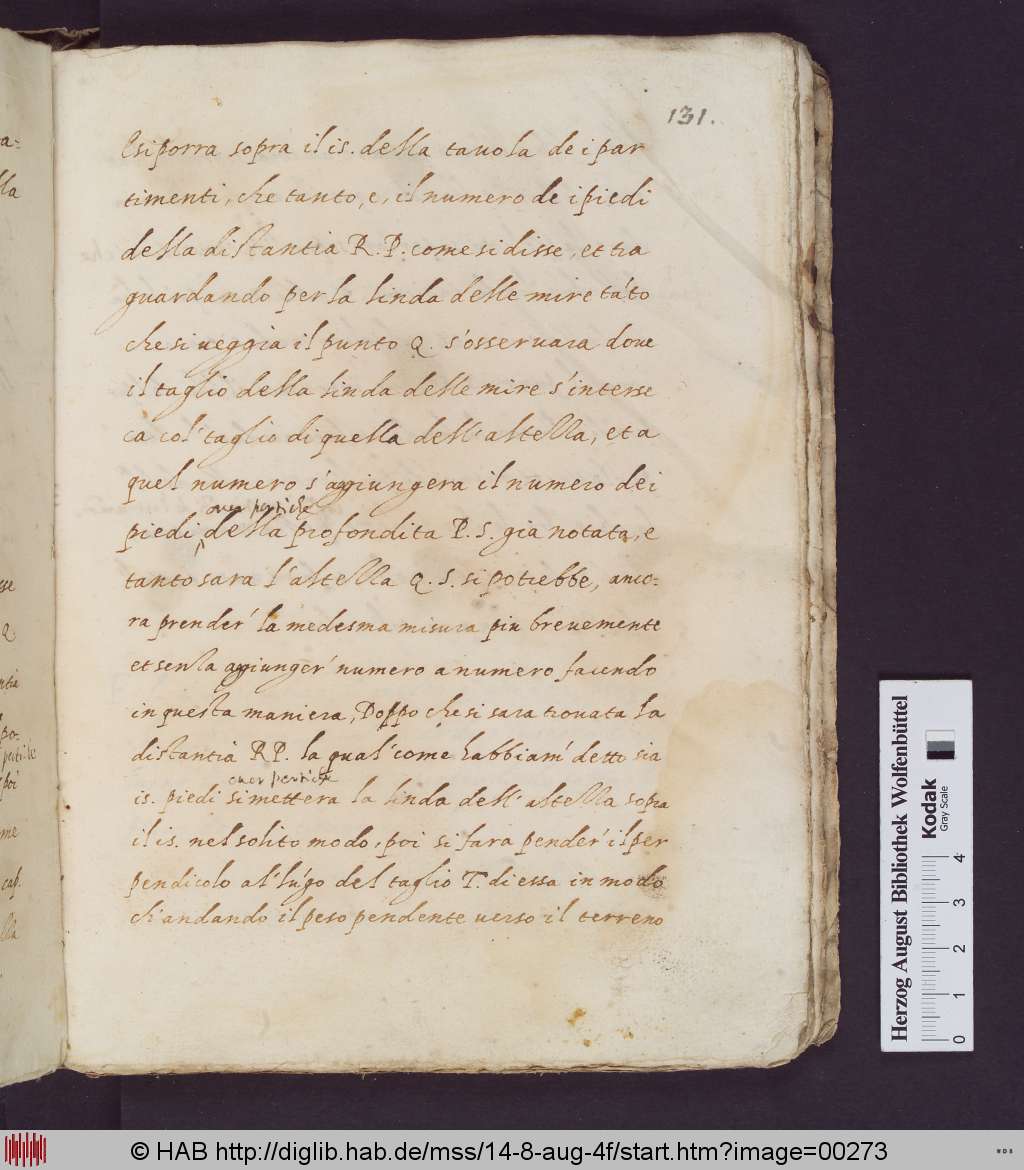 131.
Esi porra sopra il is. della tauola de i par
timenti, che tanto, e, il numero de i piedi
della distantia R. P. come si disse, et tra
guardando per la linda delle mire tāto
che si ueggia il punto Q. s'osseruara doue
il taglio della linda delle mire s'interse
ca col' taglio di quella dell' altella, et a
quel numero s'aggiungera il numero dei
ouer pertiche
piedi, della profondita P. S. gia notata, e
tanto sara l'altella Q. S. si potrebbe, anco-
ra prender' la medesma misura piu breuemente
et senza aggiunger' numero a numero facendo
in questa maniera, Doppo che si sara trouata la
distantia RP. la qual' come habbiam' detto sia
ouer pertiche
is. piedi si mettera la linda dell' altella sopra
il is. nel solito modo, poi si fara pender' il per
pendicolo al' lūgo del taglio T. di essa in modo
ch'andando il peso pendente uerso il terreno
Herzog August Bibliothek Wolfenbüttel
Kodak
Gray Scale
0 1 2 3 4
© HAB http://diglib.hab.de/mss/14-8-aug-4f/start.htm?image=00273